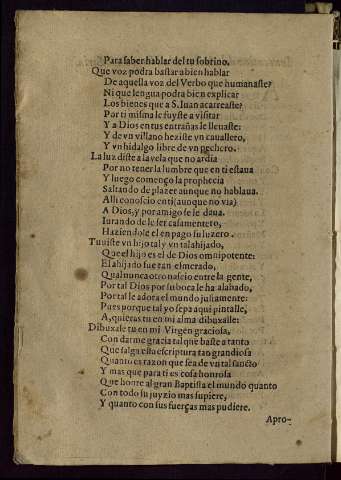 Para saber hablar del tu sobrino.
Que voz podra bastar a bien hablar
De aquella voz del Verbo que humanaste?
Ni que lengua podra bien explicar
Los bienes que a S. Iuan acarreaste?
Por ti misma le fuyste a visitar
Y a Dios en tus entrañas le lleuaste:
Y de vn villano heziste vn cauallero,
Y vn hidalgo libre de vn pechero.
La luz diste a la vela que no ardia
Por no tener la lumbre que en ti estaua
Y luego començo la prophecia
Saltando de plazer aunque no hablaua.
Alli conoscio en ti (aunque no via)
A Dios, y por amigo se le daua.
Iurando de le ser casamentero,
Haziendole el en pago su luzero.
Tuuiste vn hijo tal y vn tal ahijado,
Que el hijo es el de Dios omnipotente:
El ahijado fue tan esmerado,
Qual nunca otro nascio entre la gente,
Por tal Dios por su boca le ha alabado,
Por tal le adora el mundo justamente:
Pues porque tal yo sepa aqui pintalle,
A, quieras tu en mi alma dibuxalle:
Dibuxale tu en mi Virgen graciosa,
Con darme gracia tal que baste a tanto
Que salga esta escriptura tan grandiosa
Quanto es razon que sea de vn tal sancto
Y mas que para ti es cosa honrosa
Que honre al gran Baptista el mundo quanto
Con todo su juyzio mas supiere,
Y quanto con sus fuerças mas pudiere.
Apro-